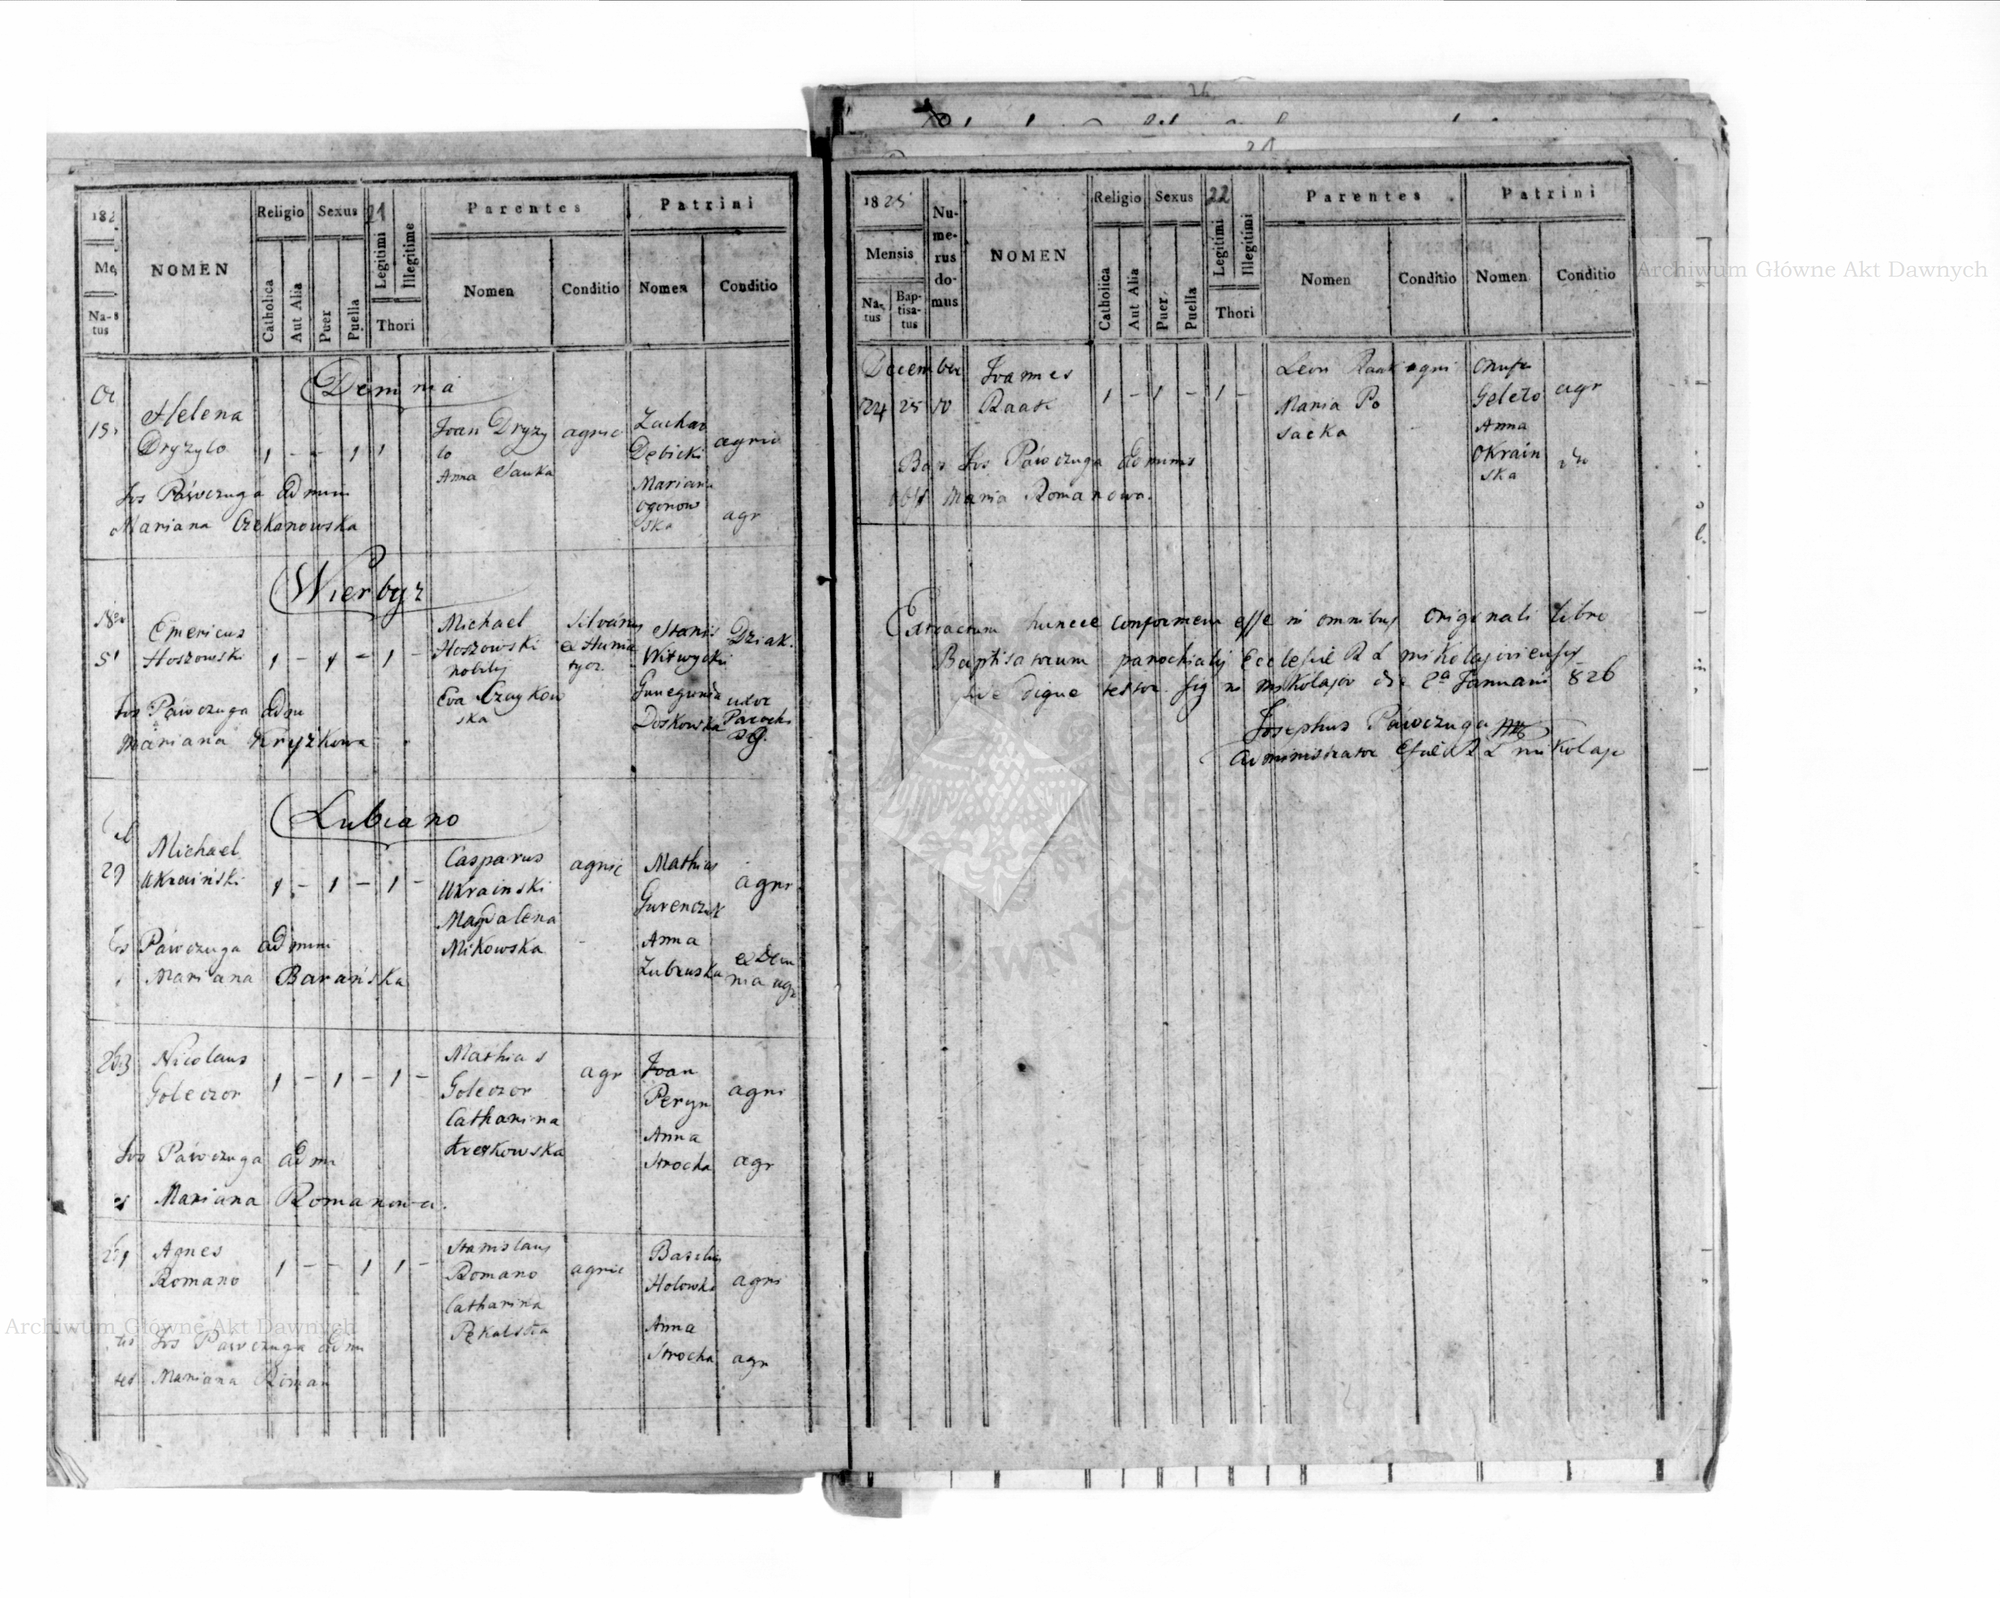 Archiwum Główne Akt Dawnych
182
Me
Na-
tus
NOMEN
Religio
Catholica
Aut Alia
Sexus
Puer
Puella
21
Legitimi
Illegitime
Thori
Parentes
Nomen
Conditio
Patrini
Nomen
Conditio
Demnia
Helena
Dryzylo
1 - - 1 1
Joan Dryzy
lo
Anna Sauka
agric
Zachar
Dębicki
agric
Mariana
Ogonow
ska
agr
Jos Páwczuga admin
Mariana Czekanowska
Wierbyz
Emericus
Hoszowski
1 - 1 - 1 -
Michael
Hoszowski
nobilis
Eva Czaykow
ska
Stanis
Witwycki
Dziak.
Gunegunda
Doskowska
uxor
Paroch
Jos Páwczuga adm
Mariana Kryzkowa
Lubiano
29
Michael
Ukraiński
1 - 1 - 1 -
Casparus
Ukrainski
Magdalena
Mikowska
agric
Mathias
Gurenczuk
agri
Anna
Zubruska
ex Dem
nia agr
Páwczuga admini
Mariana Barańska
Nicolaus
Goleczor
1 - 1 - 1 -
Mathias
Goleczor
Catharina
agr
Joan
Peryn
agri
Anna
Strocha
agr
Jos Páwczuga adm
Mariana Romanowa.
Agnes
Romano
1 - - 1 1 -
Stanislaus
Romano
Catharina
Pękalska
agric
Basilius
Holowka
agri
Anna
Strocha
agr
Jos Pawczuga adm
Mariana Roman
Archiwum Główne Akt Dawnych
1825
Mensis
Na-
tus
Bap-
tisa-
tus
Nu-
me-
rus
do-
mus
NOMEN
Religio
Catholica
Aut Alia
Sexus
Puer
Puella
22
Legitimi
Illegitimi
Thori
Parentes
Nomen
Conditio
Patrini
Nomen
Conditio
December
24 25 10
Joannes
Raak
1 - 1 - 1 -
Leon Raak
Maria Po
sacka
agri
Onufr
Gelezo
agr
Anna
Okrain
ska
Bap Jos Páwczuga adminis
obst Maria Romanowa.
Extractum huncce conformem esse in omnibus originali libro
Baptisatorum parochialis Ecclesiae R L Mikolajoviensis
fide digne testor. Sig in Mikolajov die 2a Januarii 826
Josephus Páwczuga
Administrator Eccliae R L Mikolaje